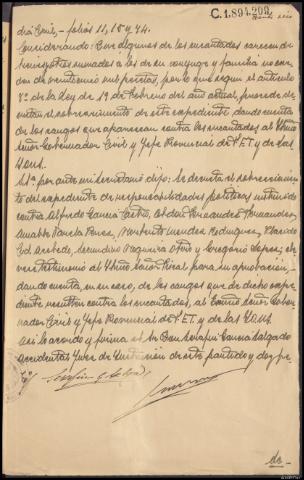 C.1.894.209
drá Gral, - folios 11, 18 y 44.
Considerando: Que algunos de los encartados carecen de
bienes y los sumados a los de su conyuge y familia no exce-
den de veinticinco mil pesetas, por lo que segun el articulo
8º de la Ley de 19 de Febrero del año actual, procede de-
cretar el sobreseimiento de este expediente dando cuenta
de los cargos que aparecen contra los encartados al Excmo
Señor Gobernador Civil y Jefe Provincial de F.E.T. y de las
J.O.N.S.
Sª por ante mi Secretario dijo: Se decreta el sobreseimien-
to del expediente de responsabilidades politicas instruido
contra Alfredo Garcia Castro, Eldan Fernandez Fernandez,
Amable Varela Perez, Norberto Mendez Rodriguez, Placido
Cid Arcebedo, Secundino Noguerra y Gregorio Lopez; ele-
vese testimonio al Iltmo Señor Fiscal para su aprobacion,
dando cuenta, en su caso, de los cargos que de dicho expe-
diente resulten contra los encartados, al Excmo Señor Gober-
nador Civil y Jefe Provincial de F.E.T. y de las J.O.N.S.
Asi lo acordó y firma el Sr Don Serafin Garcia Salgado
accidental Juez de Instruccion de este partido y doy fe.